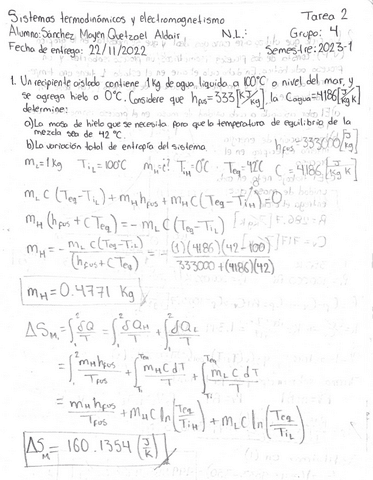 Sistemas termodinámicos y electromagnetismo Tarea 2
Alumno: Sánchez Mayén Quetzael Aldair N.L.: Grupo: 4
Fecha de entrega: 22/11/2022 Semestre: 2023-1
1. Un recipiente aislado contiene 1 kg de agua líquida a 100°C a nivel del mar, y
se agrega hielo a 0°C. Considere que hfus=333[kJ/kg], la Cagua=4186[J/kg K]
determine:
a) La masa de hielo que se necesita para que la temperatura de equilibrio de la
mezcla sea de 42°C.
b) La variación total de entropía del sistema. hfus=333000[J/kg]
mL=1kg TiL=100°C mH=¿? TiH=0°C Teq=42°C C=4186[J/kg K]
mL C (Teq-TiL) + mH hfus + mH C (Teq-TiH)=0
mH (hfus + C Teq) = - mL C (Teq-TiL)
mH = - mL C (Teq-TiL) / (hfus + C Teq) = - (1)(4186)(42-100) / 333000 + (4186)(42)
mH = 0.4771 kg
ΔSM = ∫₁² δQ/T = ∫₁² δQH/T + ∫₁² δQL/T
= ∫₁² mH hfus/Tfus + ∫Ti^Teq mH C dT/T + ∫Ti^Teq mL C dT/T
= mH hfus/Tfus + mH C ln(Teq/TiH) + mL C ln(Teq/TiL)
ΔSM = 160.1354 (J/K)